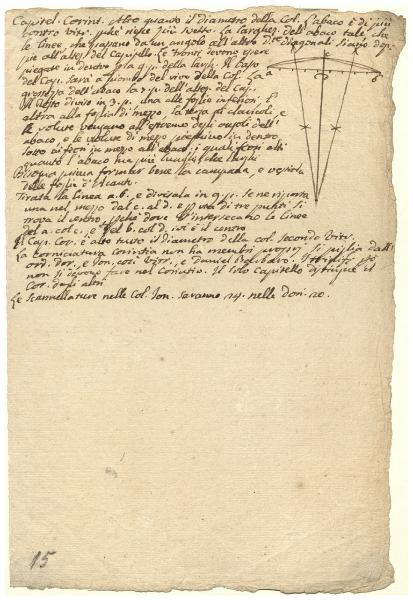 Capitel. Corint. Alto quanto il diametro della Col. L'abaco è di più
contro Vitr. perchè riesce più svelto. La larghez. dell'abaco tale, che
le linee, che passano da un angolo all'altro diagonali siano
più alte del Capitello. Le fronti devono essere
piegate in dentro la 9. p. della largh. Il basso
del Cap. sarà a piombo del vivo della Col. La
grossezza dell'abaco la 7. p. dell'altez. del Cap.
Il resto diviso in 3. p. una alle foglie inferiori, l'
altra alla foglia di mezzo, la terza ai caulicoli, e
le volute vengano all'estremo degli angoli dell'
abaco, e le volute di mezzo in dentro
sotto ai fiori in mezzo all'abaco: i quali fiori alti
quanto l'abaco
Bisogna prima formar bene la campana, e vestirla
delle foglie d'Acanto.
Tirata la linea a. b. e divisala in 9. p. se ne riporta
una nel mezzo dal c. al d. e p. via di tre punti si
trova il centro, perchè dove s'intersecano le linee
del a. col c. e del b. col d. ivi è il centro
Il Cap. Cor. è alto tutto il diametro della col. secondo Vitr.
La corniciatura Corintia non ha membri proprj, si piglia dall'
ord. Dor. e Ion. così Vitr. e Daniel Barbaro.
non si devono fare nel Corintio. Il solo Capitello distingue il
Cor. dagli altri
Le scannellature nelle Col. Ion. saranno 24. nelle Dor. 20.
a
c
d
b
15